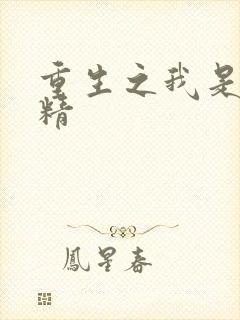 重生之我是
精
鳳星春